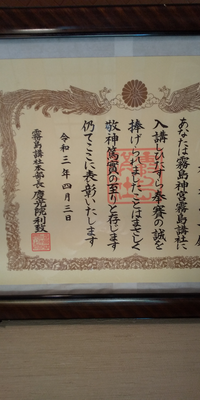 あなたは霧島神宮霧島講社に
入講しひたすら奉賽の誠を
捧げられましたことはまさしく
敬神篤實の至りと存じます
仍てここに表彰いたします
令和三年四月三日
霧島講社本部長 慶光院利致